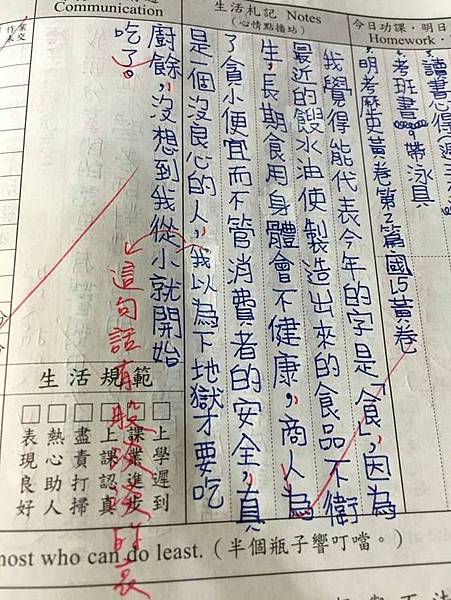 Communication
生活札記 Notes
(心情點播站)
今日功課‧明日
Homework‧
、讀書心得
、考班書 帶泳具
、明考歷史黃卷第2篇 國L5黃卷
我覺得能代表今年的字是「食」,因為
最近的餿水油使製造出來的食品不衛
生,長期食用身體會不健康,商人為
了貪小便宜而不管消費者的安全,真
是一個沒良心的人,我以為下地獄才要吃
廚餘,沒想到我從小就開始
吃了。
這句話有股淡淡的哀
生活規範
上學遲到
課業進步
上課認真
盡責打掃
熱心助人
表現良好
most who can do least. (半個瓶子響叮噹。)